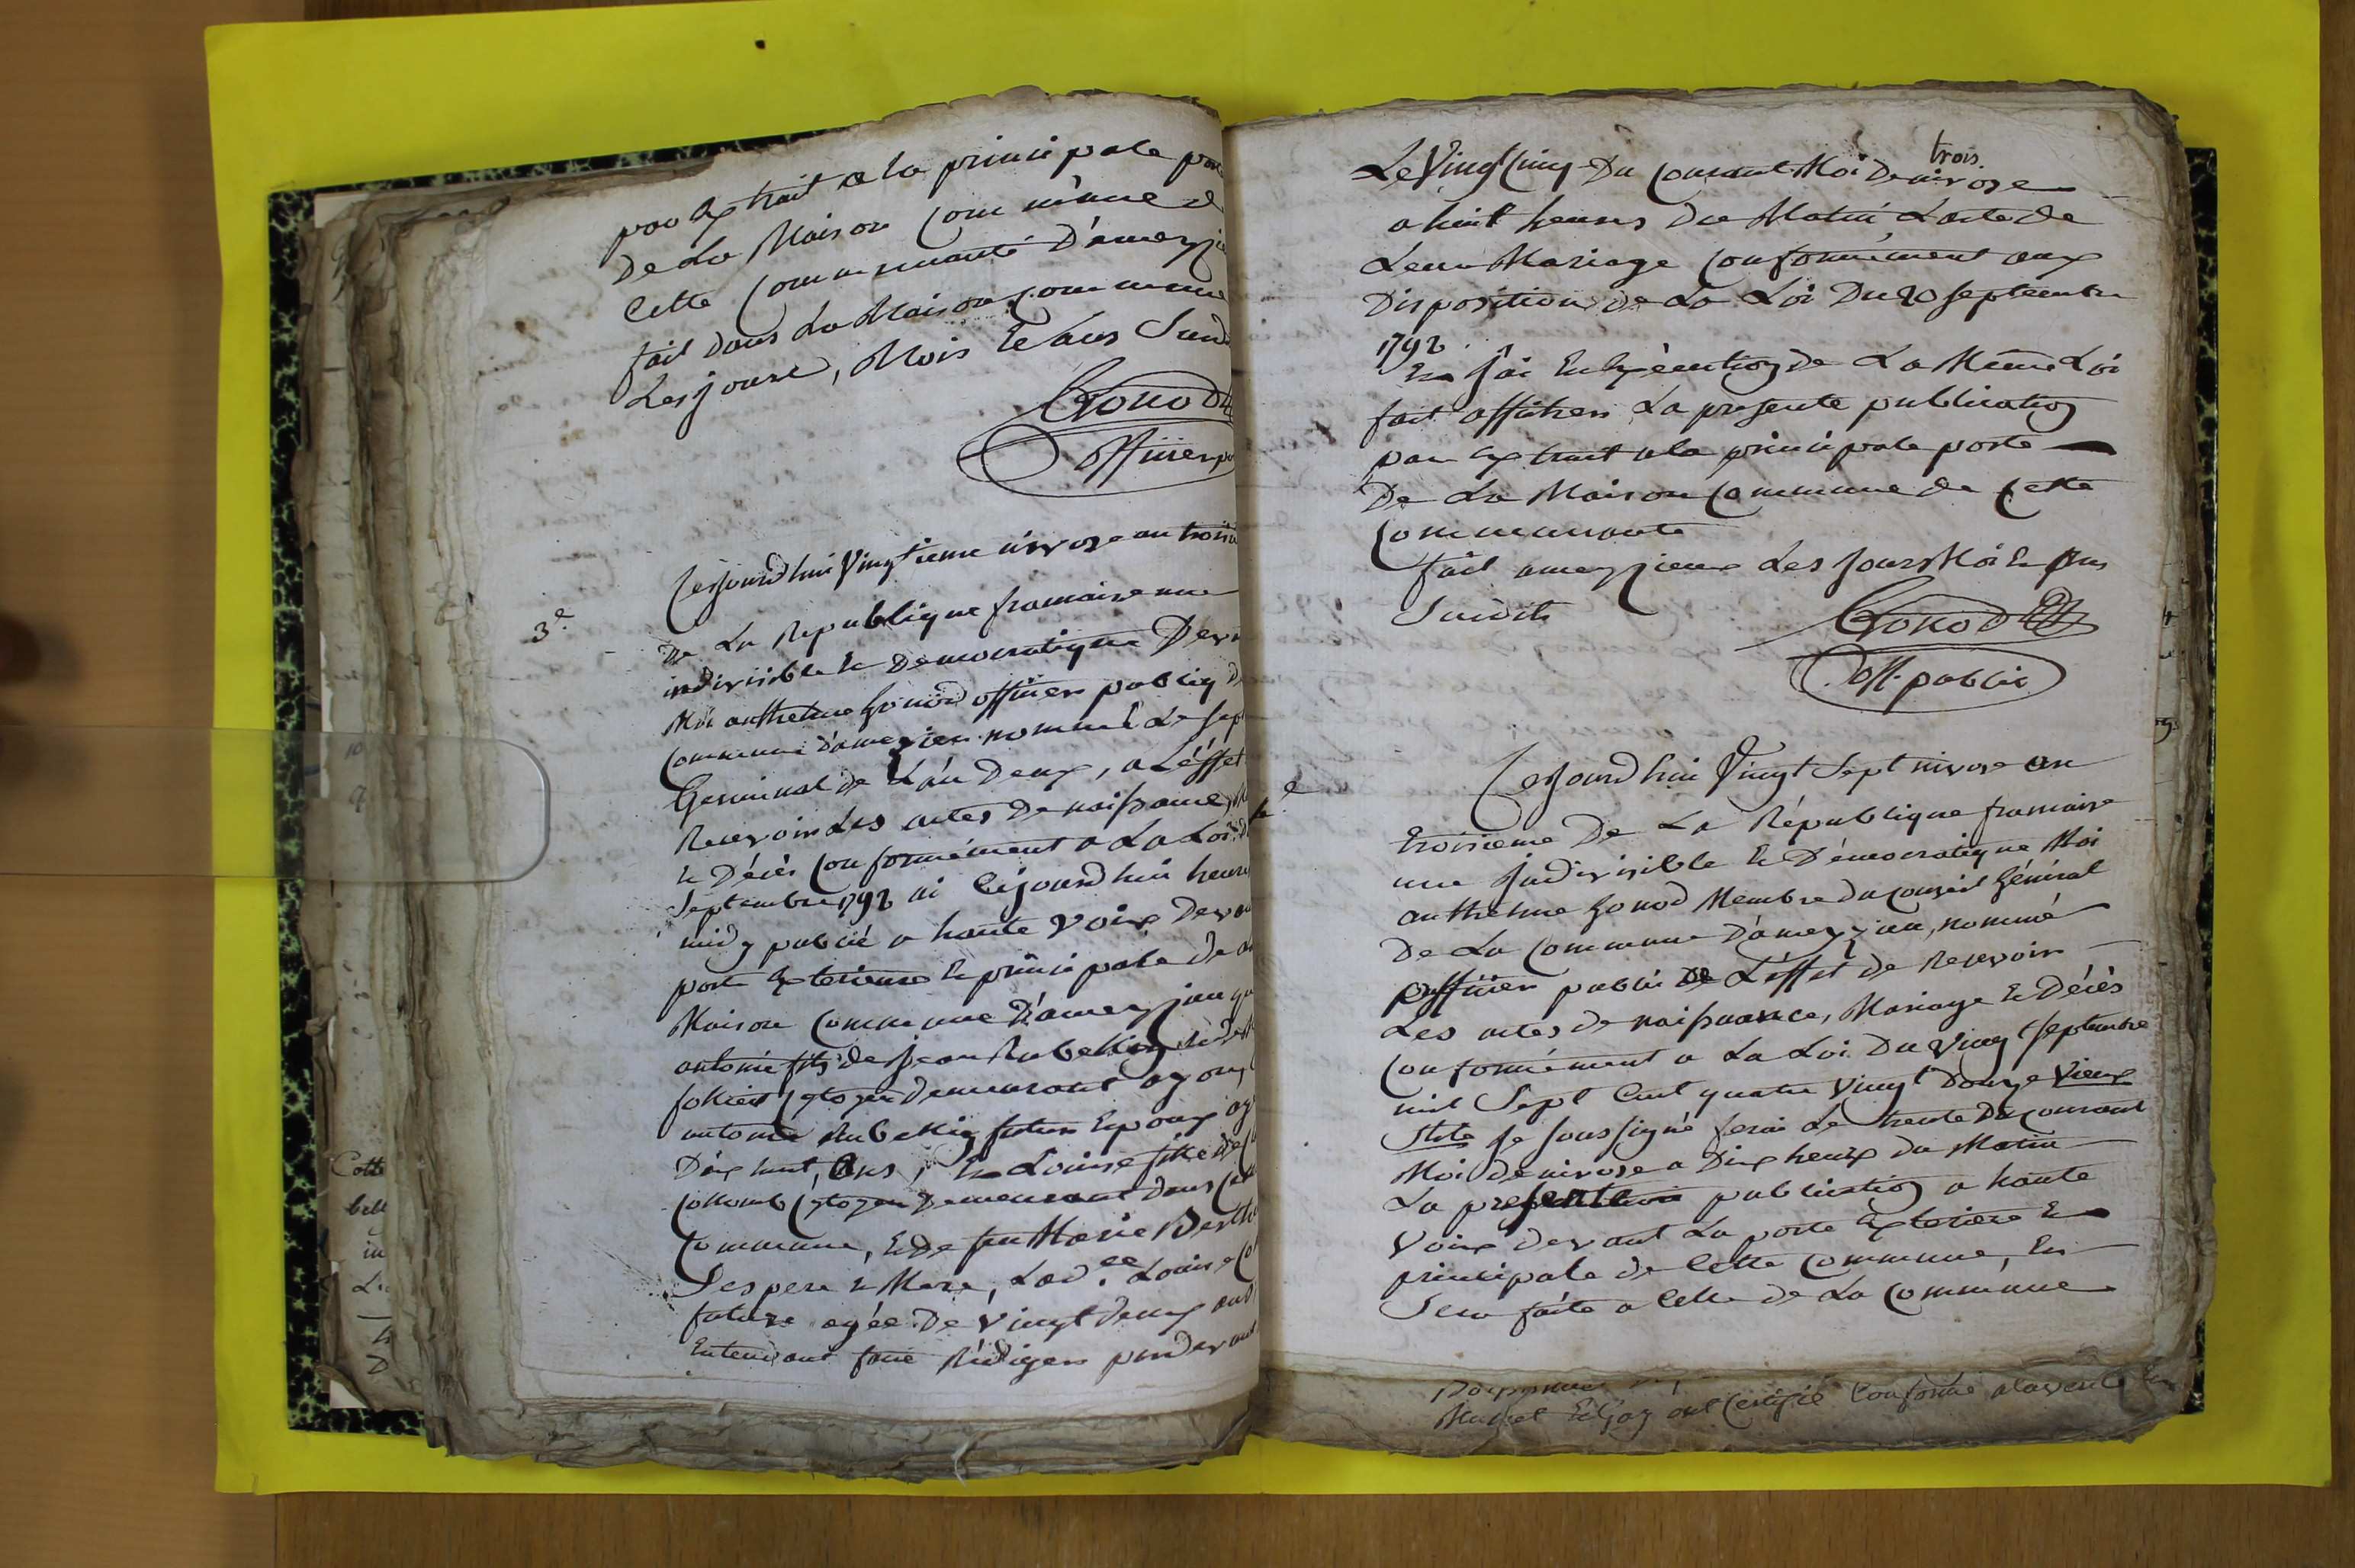 par Extrait a la principale porte
De La Maison Commune d
Cette Communauté D'ameyzieu
fait dans La Maison Commune
Les jours, Mois & ans Susd
Gonod
officier pu
3e
Cejourd'hui Vingtieme nivose an troisie
De La Republique francaise une
indivisible & Democratique Deva
Moi anthelme Gonod officier public d
Commune d'ameyzieu nommé Le sept
Germinal de L'an Deux, a L'éffet
Recevoir Les actes De naissance, M
& Décès Conformément a La Loi d
Septembre 1792 ai Cejourd'hui heure
midy publié a haute Voix Devan
porte Exterieure & principale de
Maison Commune D'ameyzieu qu
antoine fils de jean
Citoyen demeurant a
antoine futur Epoux ag
Dix huit, ans, & Louise fille de
Collomb Citoyen Demeurant dans Cet
Commune, & De feu Marie Berth
Ses pere & Mere, Lad.ee Louise Co
future agée De Vingt deux ans
Entendant faire Rédiger pardevant
Le Vingt Cinq Du Courant Moi De nivose trois
a huit heures du Matin L'acte de
Leur Mariage Conformément aux
Disposition de La Loi Du 20 septembre
1792
& J'ai En Exécution de La Même Loi
fait afficher La presente publication
par Extrait a la principale porte
De La Maison Commune de Cette
Communauté
fait a meyzieux Les Jours Moi & ans
Susdits
Gonod
off. public
Cejourd'hui Vingt Sept nivose an
troisieme De La République francaise
une Indivisible & Démocratique Moi
anthelme Gonod Membre du Conseil Général
De La Commune D'ameyzieu, nommé
officier public a L'éffet de Recevoir
Les actes de naissance, Mariage & Décès
Conformément a La Loi Du Vingt septembre
mil Sept Cent quatre Vingt Douze Vieux
Stile Je soussigné ferai Le trente Du Courant
Moi de nivose a Dix heures du Matin
La presente publication a haute
Voix devant La porte Exteriere &
principale de Cette Commune, En
Sera faite a Celle de La Commune
ont Certifié Conforme a la verité En